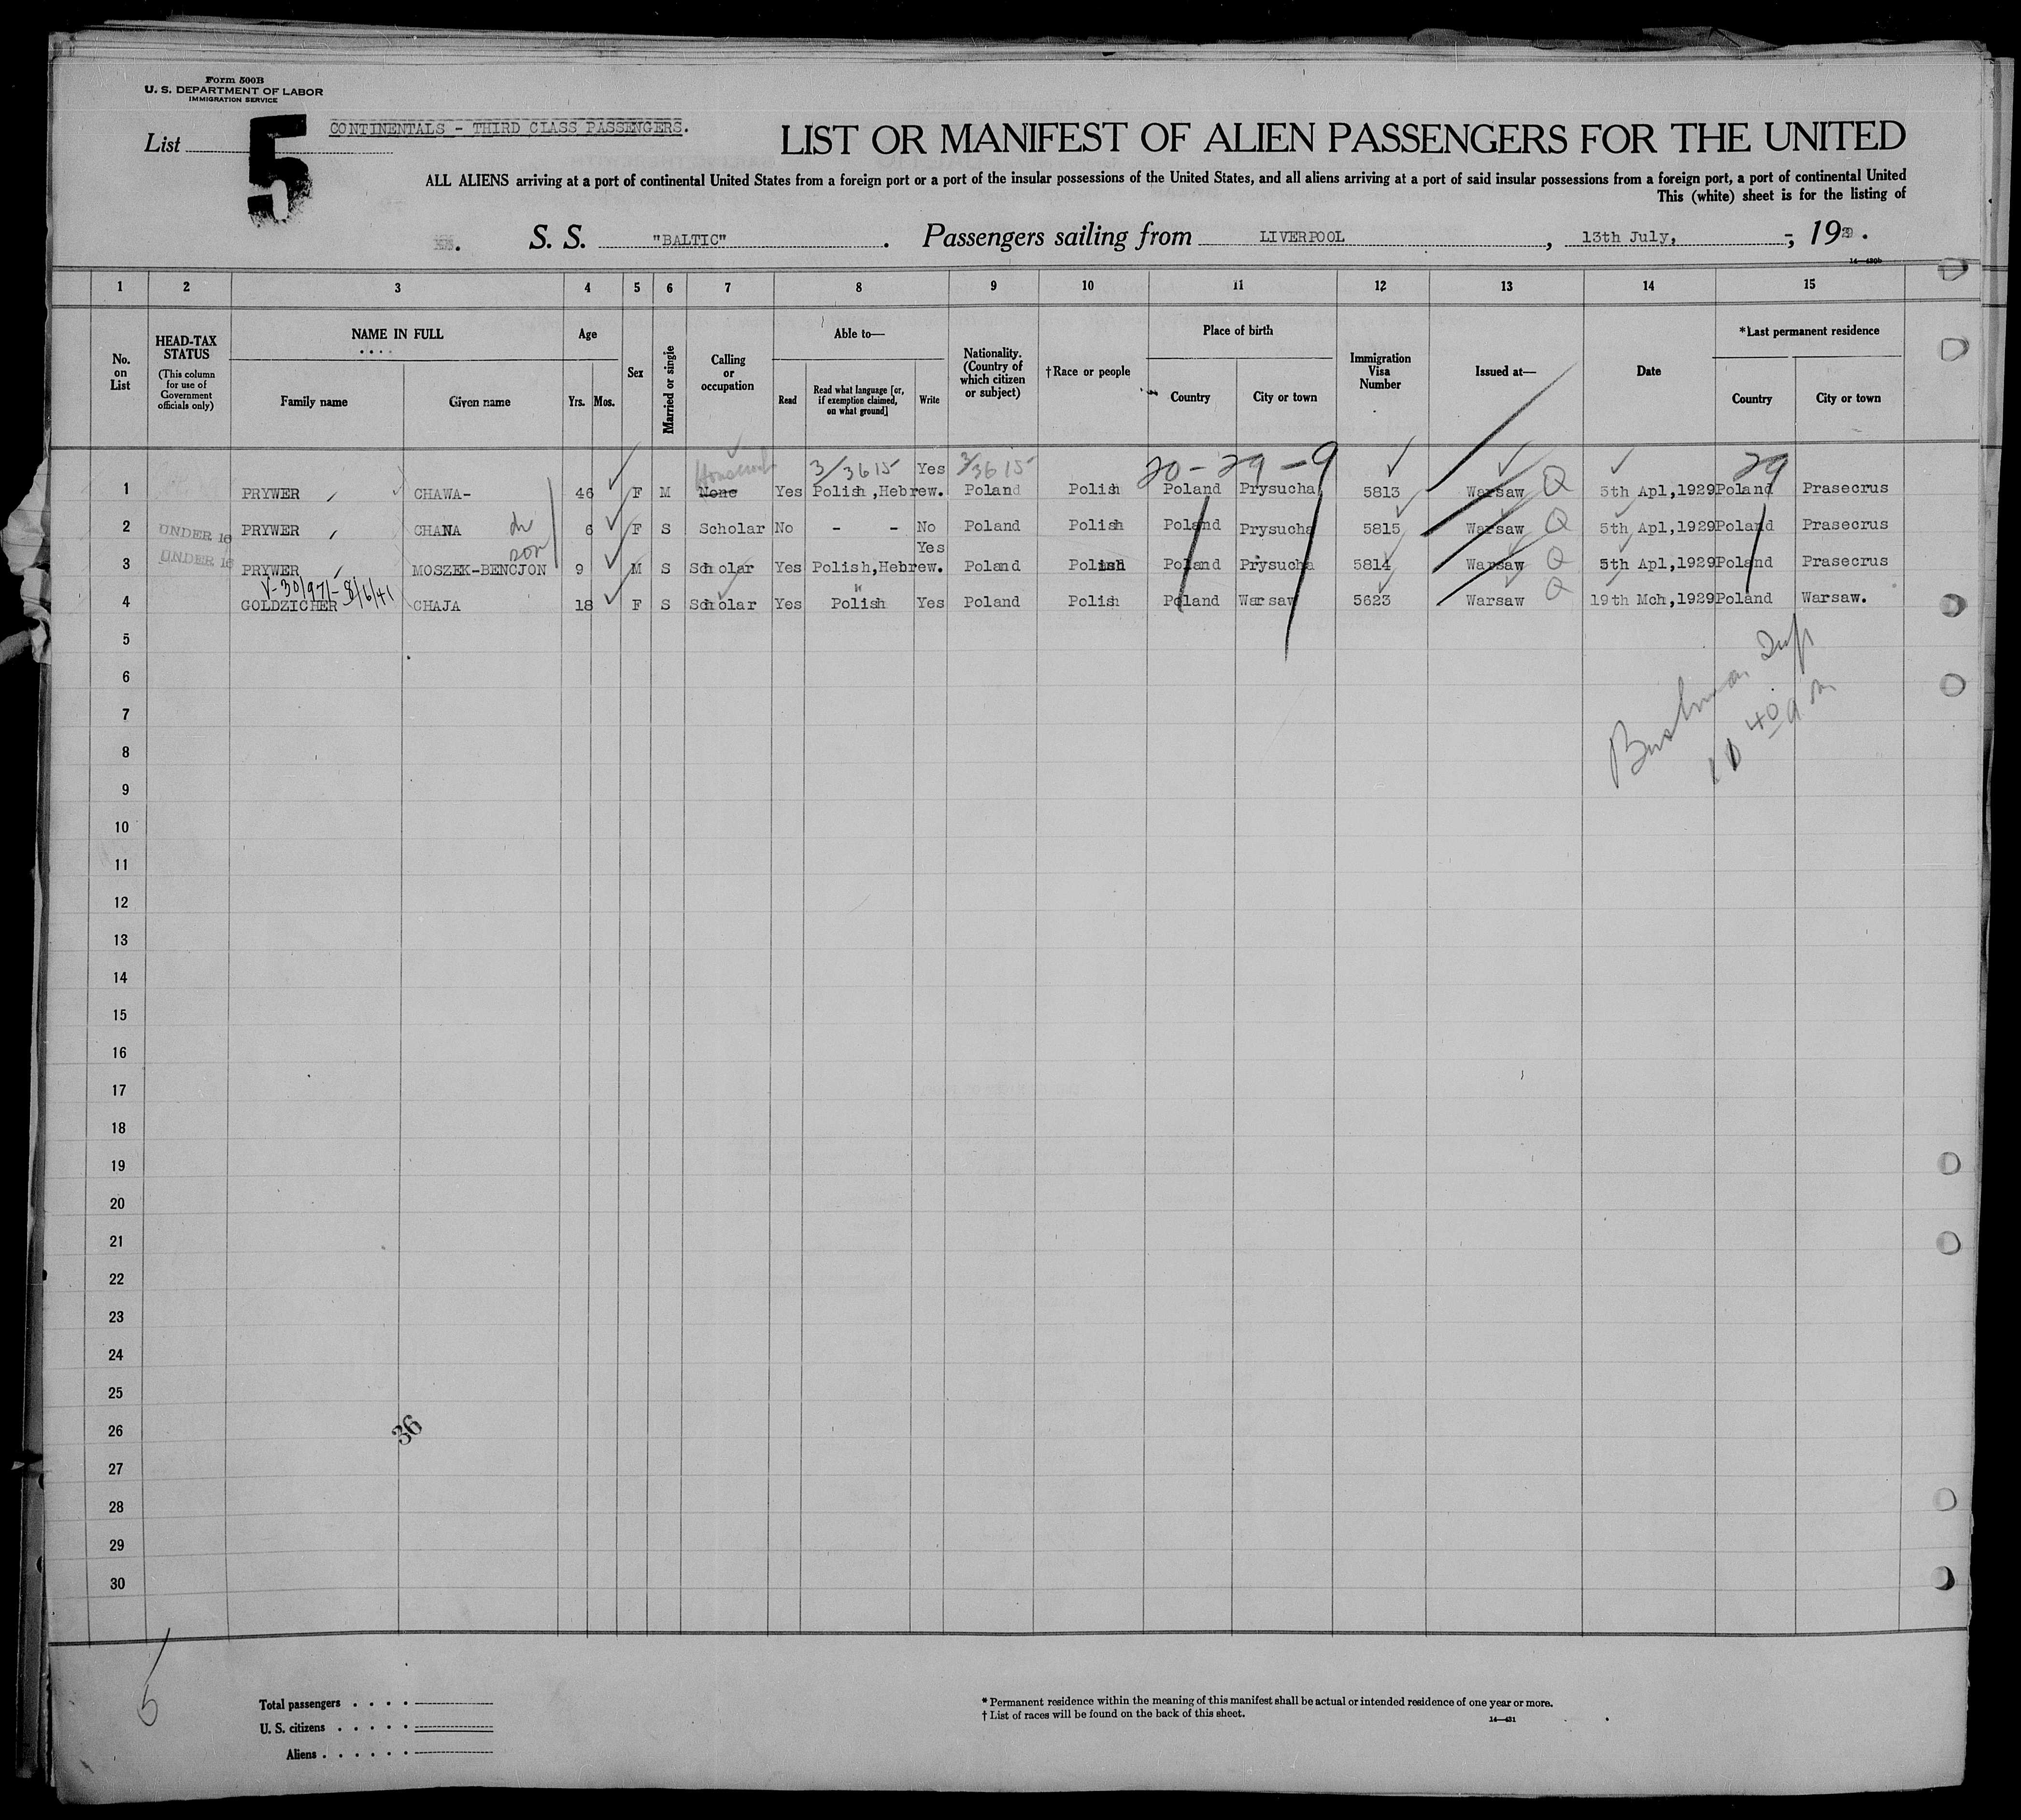 Form 500B
U. S. DEPARTMENT OF LABOR
IMMIGRATION SERVICE
List 5
CONTINENTALS - THIRD CLASS PASSENGERS.
LIST OR MANIFEST OF ALIEN PASSENGERS FOR THE UNITED
ALL ALIENS arriving at a port of continental United States from a foreign port or a port of the insular possessions of the United States, and all aliens arriving at a port of said insular possessions from a foreign port, a port of continental United
This (white) sheet is for the listing of
S. S. "BALTIC". Passengers sailing from LIVERPOOL, 13th July,-, 1929.
14—430b
1 2 3 4 5 6 7 8 9 10 11 12 13 14 15
No. on List
HEAD-TAX STATUS (This column for use of Government officials only)
NAME IN FULL
Family name Given name
Age Yrs. Mos.
Sex
Married or single
Calling or occupation
Able to—
Read Read what language [or, if exemption claimed, on what ground] Write
Nationality. (Country of which citizen or subject)
†Race or people
Place of birth
Country City or town
Immigration Visa Number
Issued at—
Date
*Last permanent residence
Country City or town
3/3615 Yes 3/3615 20-29-9 29
1 PRYWER CHAWA- 46 F M None Yes Polish,Hebrew. Poland Polish Poland Prysucha 5813 Warsaw Q 5th Apl,1929 Poland Prasecrus
2 UNDER 16 PRYWER CHANA 6 F S Scholar No - - No Poland Polish Poland Prysucha 5815 Warsaw Q 5th Apl,1929 Poland Prasecrus
son Yes
3 UNDER 16 PRYWER MOSZEK-BENCJON 9 M S Scholar Yes Polish,Hebrew. Poland Polish Poland Prysucha 5814 Warsaw Q 5th Apl,1929 Poland Prasecrus
V-30/971-8/6/41
4 GOLDZICHER CHAJA 18 F S Scholar Yes Polish Yes Poland Polish Poland Warsaw 5623 Warsaw Q 19th Mch,1929 Poland Warsaw.
5
6
7
8
9
10
11
12
13
14
15
16
17
18
19
20
21
22
23
24
25
26
36
27
28
29
30
Total passengers . . . .
U. S. citizens . . . . .
Aliens . . . . . .
* Permanent residence within the meaning of this manifest shall be actual or intended residence of one year or more.
† List of races will be found on the back of this sheet.
14—431